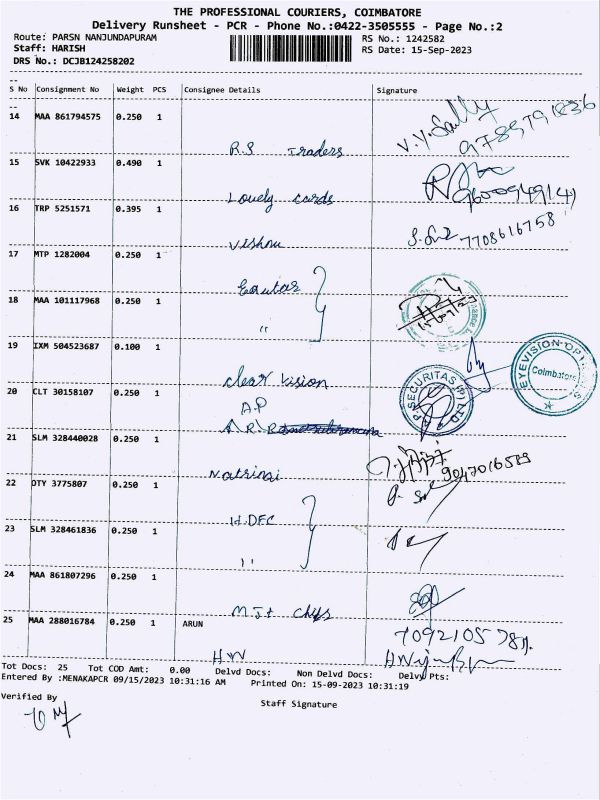 THE PROFESSIONAL COURIERS, COIMBATORE
Delivery Runsheet - PCR - Phone No.:0422-3505555 - Page No.:2
Route: PARSN NANJUNDAPURAM RS No.: 1242582
Staff: HARISH RS Date: 15-Sep-2023
DRS No.: DCJB124258202
S No Consignment No Weight PCS Consignee Details Signature
14 MAA 861794575 0.250 1
R.S Traders
15 SVK 10422933 0.490 1
Lovely cards
16 TRP 5251571 0.395 1
Vishnu 7708616758
17 MTP 1282004 0.250 1
18 MAA 101117968 0.250 1
"
19 IXM 504523687 0.100 1
EYEVISION
Coimbatore
clear vision
20 CLT 30158107 0.250 1
SECURITAS (P) LTD
A.P
21 SLM 328440028 0.250 1
9047016589
22 OTY 3775807 0.250 1
HDFC
23 SLM 328461836 0.250 1
"
24 MAA 861807296 0.250 1
25 MAA 288016784 0.250 1 ARUN
HW
Tot Docs: 25 Tot COD Amt: 0.00 Delvd Docs: Non Delvd Docs: Delvy Pts:
Entered By :MENAKAPCR 09/15/2023 10:31:16 AM Printed On: 15-09-2023 10:31:19
Verified By
Staff Signature